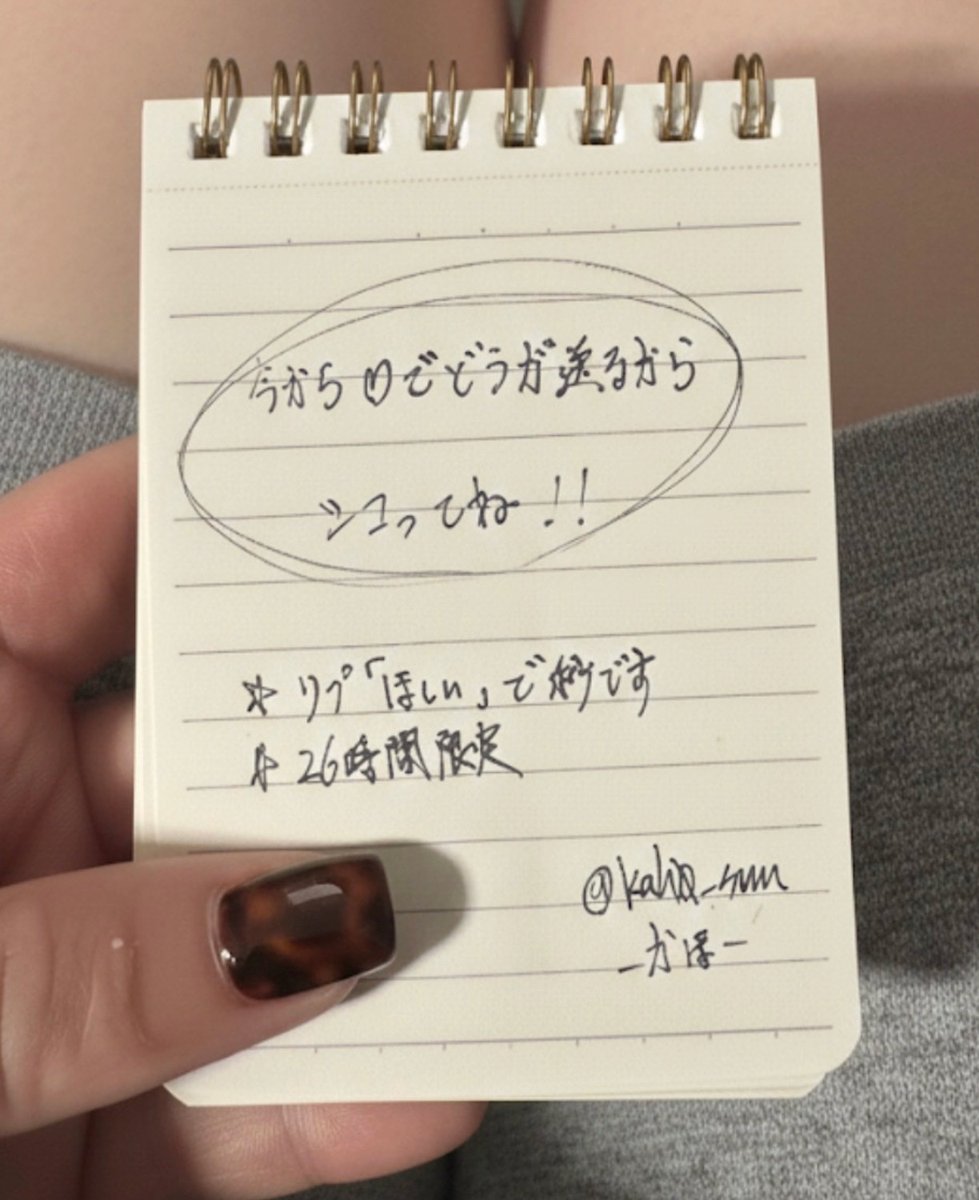 今から♡でどうが送るから
シコってね!!
☆ リプ「ほしい」で秒です
☆ 26時間限定
@kaho_suu
－かほ－